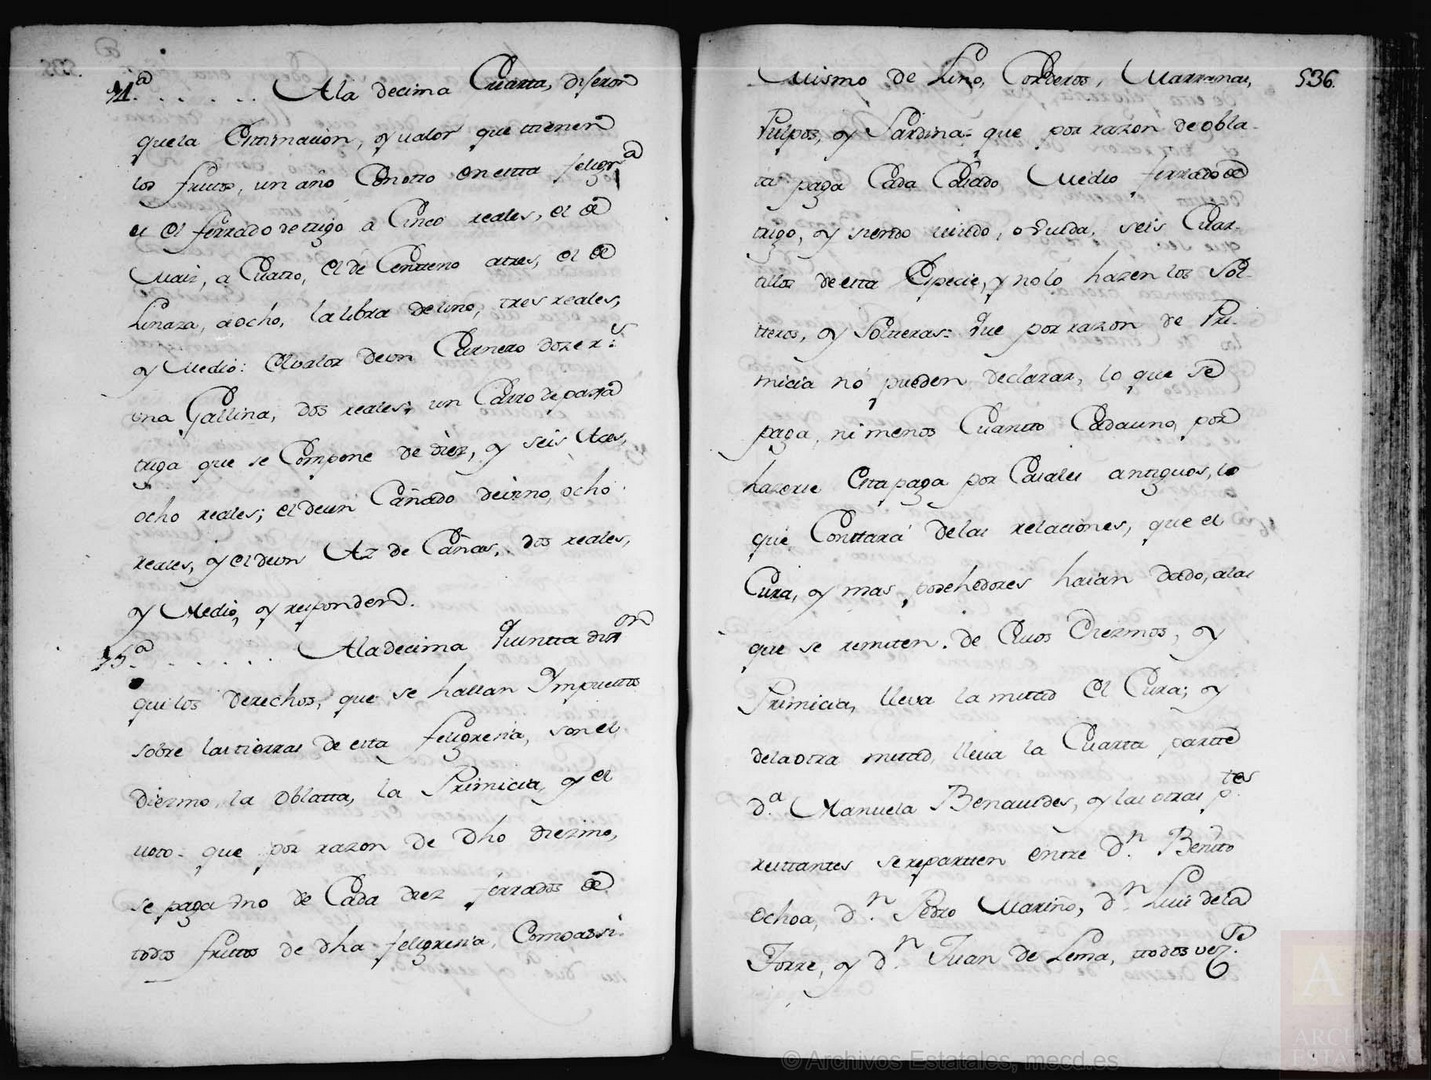 14.ª . . . . . . Ala decima Quarta, dixeron
que la Estimacion, y valor que tienen
los frutos, un año Con otro en esta feligr.ª
es el ferrado de trigo a Cinco reales, el de
Maiz, a Quatro, el de Centteno atres, el de
Linaza, aocho, la libra de lino, tres reales,
y Medio: El valor de un Carnero doze r.s
una Gallina, dos reales; un Carro de paxa
triga que se Compone de diez, y seis Azes,
ocho reales; el de un Cañado de vino, ocho
reales, y el de un Az de Cañas, dos reales,
y Medio, y responden.
15.ª . . . . . . Ala decima Quintta dix.on
que los derechos, que se hallan Ympuestos
sobre las tierras de esta feligresia, son el
Diezmo, la oblatta, la Primicia, y el
voto: que por razon de dho diezmo,
se paga uno de Cada diez ferrados de
todos frutos de dha feligresia, Como assi-
536.
Mismo de Lino, Corderos, Marranas,
Pulpos, y Sardina: que por razon de obla-
ta paga Cada Casado Medio ferrado de
trigo, y siendo viudo, o viuda, seis Quar-
tillos de esta Especie, y no lo hazen los Sol-
tteros, y Soltteras: Que por razon de Pri-
micia nó pueden declarar, lo que se
paga, ni menos Quantto Cada uno, por
hazerse Esta paga por Casales antiguos, lo
qué Conttará delas relaciones, que el
Cura, y mas porzhedores haian dado, alas
que se remiten. De Cuios Diezmos, y
Primicia, lleva la mitad el Cura; y
dela otra mitad, lleva la Quarta partte
D.ª Manuela Benavides, y las otras p.tes
restantes se reparten entre D.n Benito
Ochoa, D.n Pedro Mariño, D.n Luis dela
Torre, y D.n Juan de Lema, ttodos vez.s de
© Archivos Estatales, mecd.es